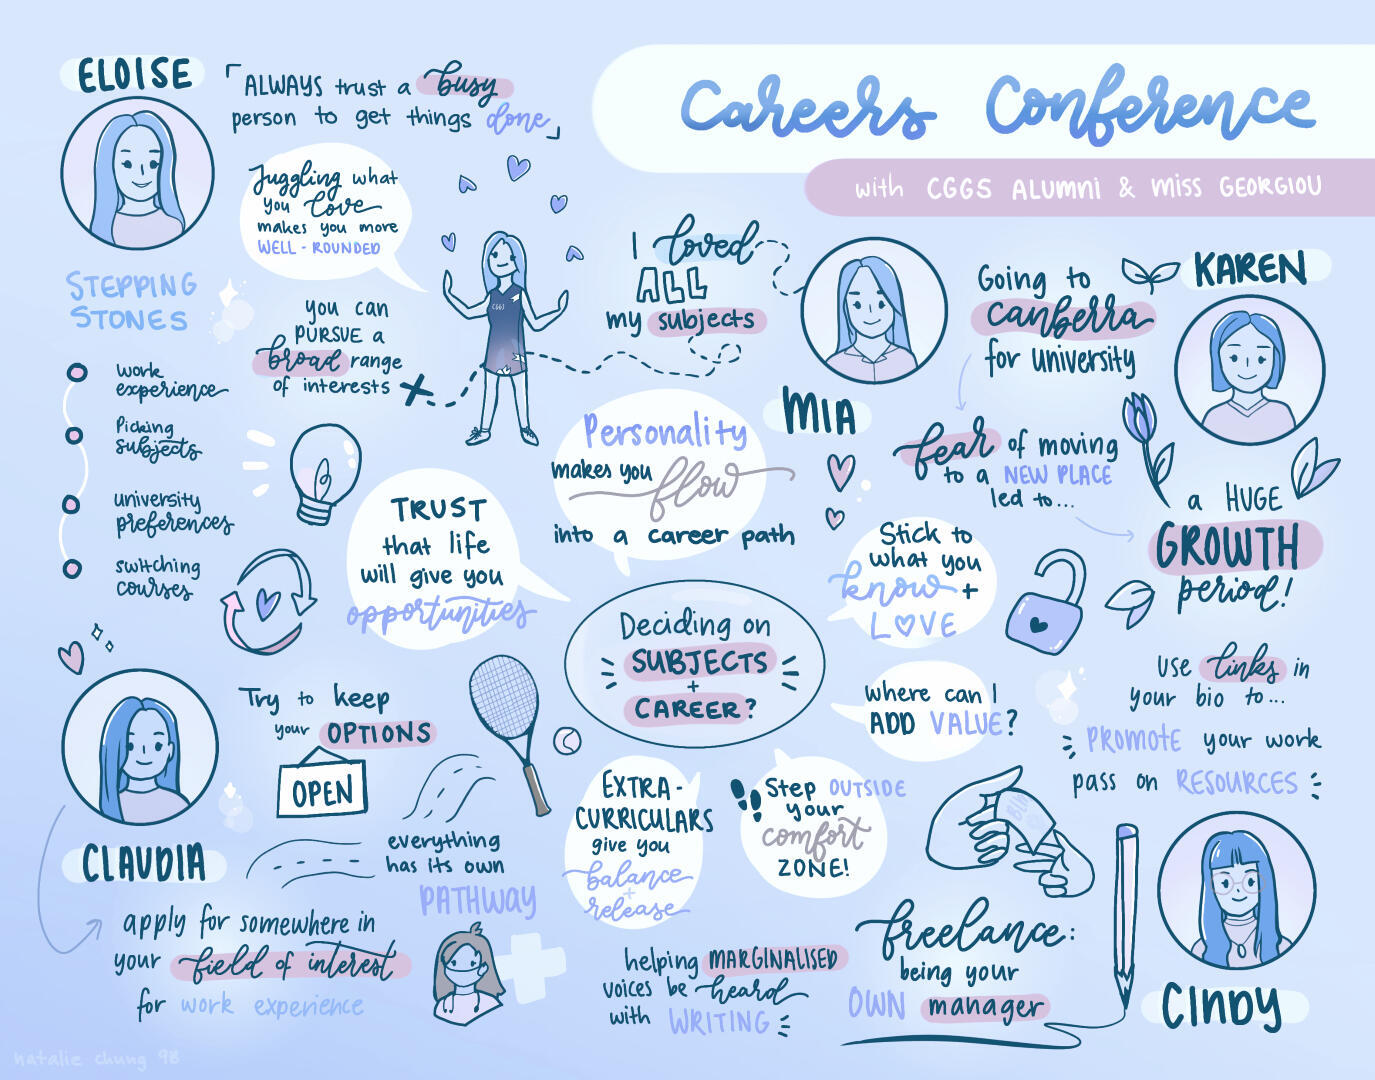 Careers Conference
with CGGS ALUMNI & MISS GEORGIOU
ELOISE
「ALWAYS trust a busy
person to get things done」
Juggling what
you love
makes you more
WELL-ROUNDED
you can
PURSUE a
broad range
of interests
CGGS
STEPPING
STONES
work
experience
Picking
subjects
university
preferences
switching
courses
I loved
ALL
my subjects
MIA
Personality
makes you flow
into a career path
KAREN
Going to
Canberra
for university
fear of moving
to a NEW PLACE
led to...
a HUGE
GROWTH
period!
TRUST
that life
will give you
opportunities
Stick to
what you
know +
LOVE
Deciding on
SUBJECTS
+
CAREER?
where can I
ADD VALUE?
EXTRA-
CURRICULARS
give you
balance
+
release
Step OUTSIDE
your
comfort
ZONE!
CLAUDIA
Try to keep
your OPTIONS
OPEN
everything
has its own
PATHWAY
apply for somewhere in
your field of interest
for work experience
use links in
your bio to...
PROMOTE your work
pass on RESOURCES
CINDY
freelance:
being your
OWN manager
helping MARGINALISED
voices be heard
with WRITING
natalie chung 9B